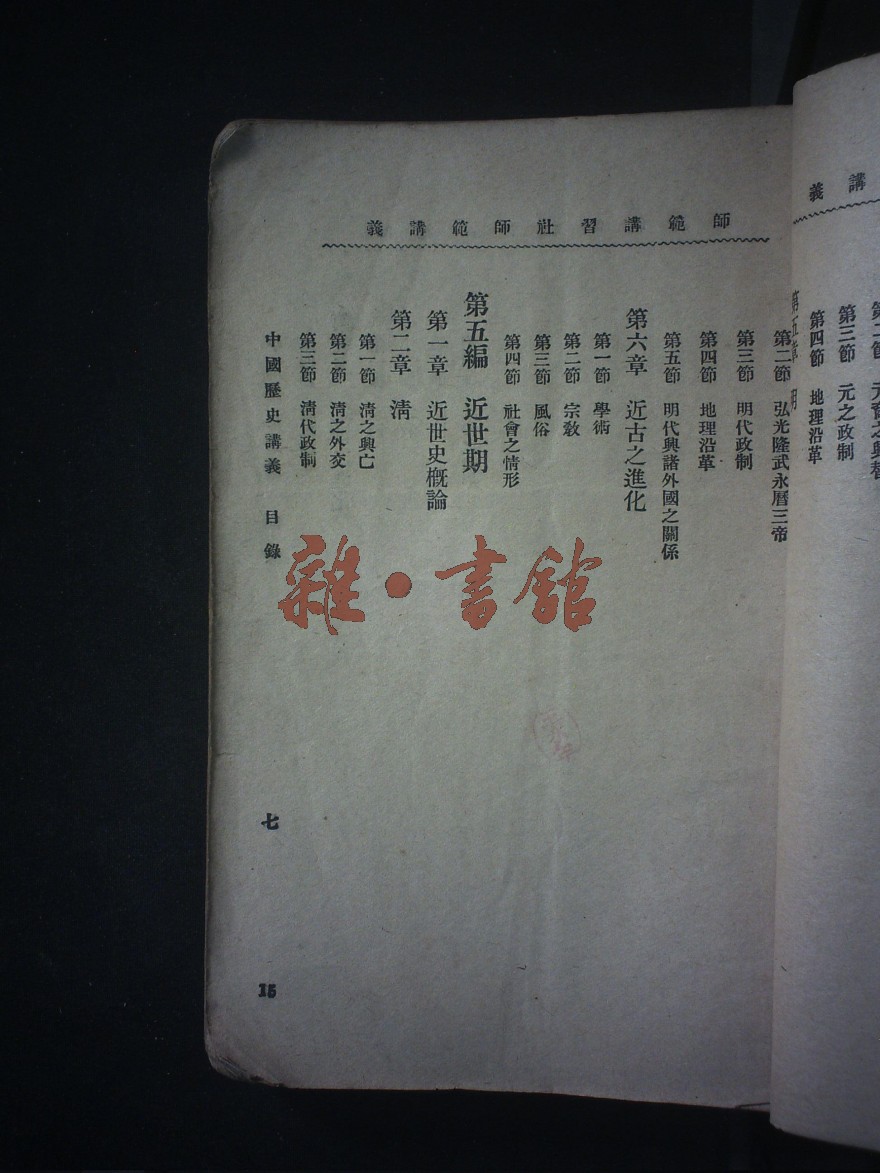 講義
第三節 元之政制
第四節 地理沿革
師範講習社師範講義
第二節 弘光隆武永曆三帝
第三節 明代政制
第四節 地理沿革
第五節 明代與諸外國之關係
第六章 近古之進化
第一節 學術
第二節 宗教
第三節 風俗
第四節 社會之情形
第五編 近世期
第一章 近世史概論
第二章 清
第一節 清之興亡
第二節 清之外交
第三節 清代政制
中國歷史講義 目錄 七
15
雜·書館